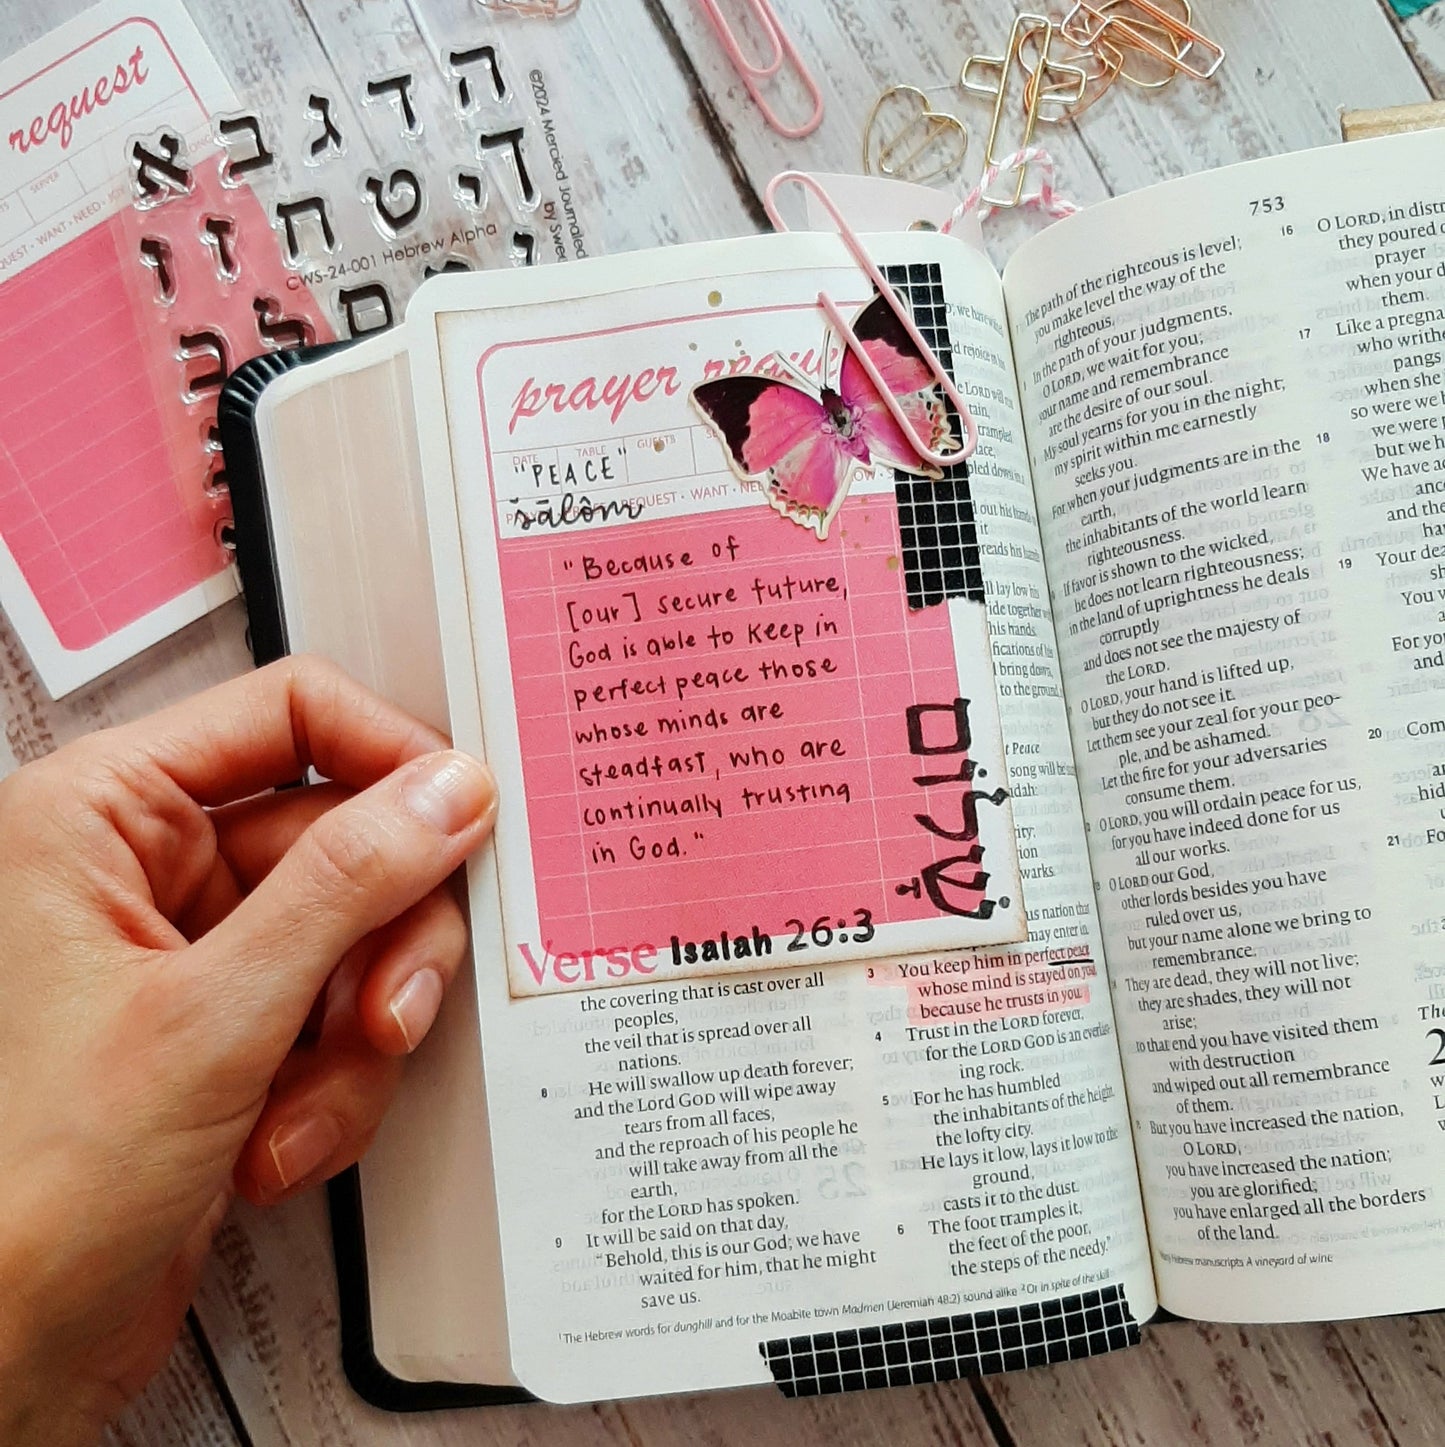 request
SERVER
QUEST • WANT • NEED •
ה ד ג ב א
ט ח
ו ז
CWS-24-001 Hebrew Alpha
©2024 Mercied Journaled
by Swee
prayer reque
DATE TABLE GUESTS
"PEACE"
šālôm
REQUEST • WANT • NEE
"Because of
[our] secure future,
God is able to keep in
perfect peace those
whose minds are
steadfast, who are
continually trusting
in God."
שָׁלוֹם
Verse Isaiah 26:3
the covering that is cast over all
peoples,
the veil that is spread over all
nations.
8 He will swallow up death forever;
and the Lord GOD will wipe away
tears from all faces,
and the reproach of his people he
will take away from all the
earth,
for the LORD has spoken.
9 It will be said on that day,
"Behold, this is our God; we have
waited for him, that he might
save us.
t Peace
song will be
dah:
us nation that
may enter in.
3 You keep him in perfect peace
whose mind is stayed on you,
because he trusts in you.
4 Trust in the LORD forever,
for the LORD GOD is an everlast-
ing rock.
5 For he has humbled
the inhabitants of the height,
the lofty city.
He lays it low, lays it low to the
ground,
casts it to the dust.
6 The foot tramples it,
the feet of the poor,
the steps of the needy."
1 The Hebrew words for dunghill and for the Moabite town Madmen (Jeremiah 48:2) sound alike 2 Or in spite of the skill
753
The path of the righteous is level;
you make level the way of the
righteous.
In the path of your judgments,
O LORD, we wait for you;
your name and remembrance
are the desire of our soul.
My soul yearns for you in the night;
my spirit within me earnestly
seeks you.
For when your judgments are in the
earth,
the inhabitants of the world learn
righteousness.
If favor is shown to the wicked,
he does not learn righteousness;
in the land of uprightness he deals
corruptly
and does not see the majesty of
the LORD.
O LORD, your hand is lifted up,
but they do not see it.
Let them see your zeal for your peo-
ple, and be ashamed.
Let the fire for your adversaries
consume them.
O LORD, you will ordain peace for us,
for you have indeed done for us
all our works.
O LORD our God,
other lords besides you have
ruled over us,
but your name alone we bring to
remembrance.
They are dead, they will not live;
they are shades, they will not
arise;
to that end you have visited them
with destruction
and wiped out all remembrance
of them.
But you have increased the nation,
O LORD,
you have increased the nation;
you are glorified;
you have enlarged all the borders
of the land.
Hebrew manuscripts A vineyard of wine
16 O LORD, in distr
they poured
prayer
when your d
them.
17 Like a pregna
who writhe
pangs
when she
so were we b
18 we were p
but we h
We have ac
and the
ha
19 Your dea
sh
You w
a
For yo
and
20 Com
an
hid
21 Fo